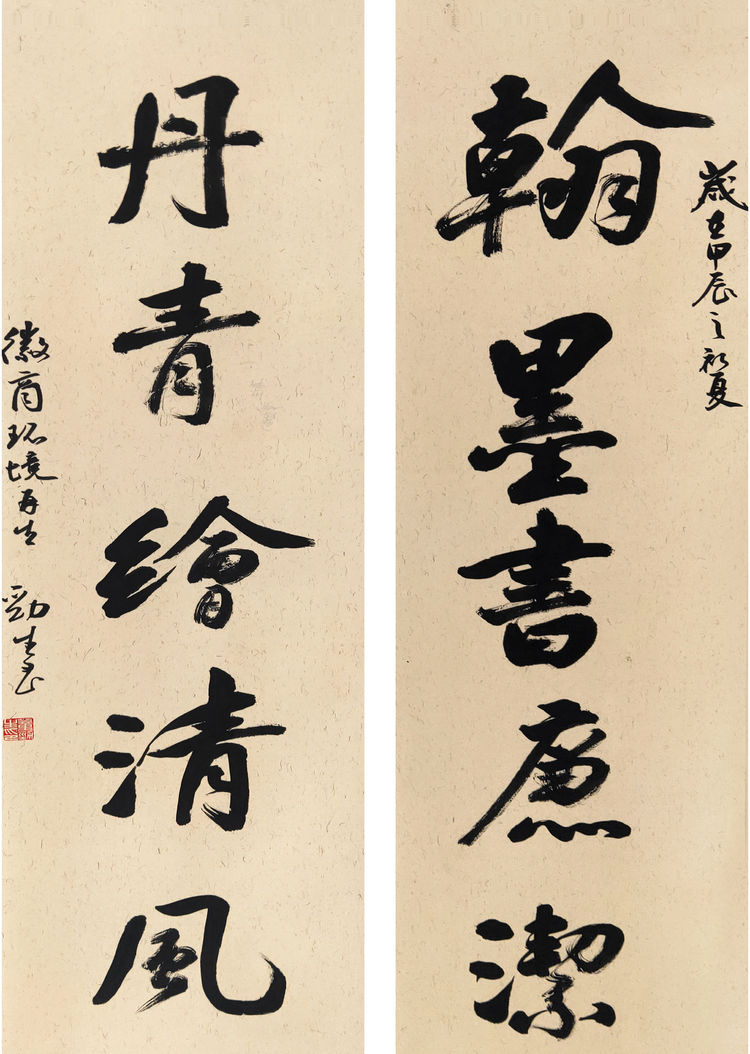 歲在甲辰之初夏
翰墨書廉潔
丹青繪清風
徽商环境再生 勁生書